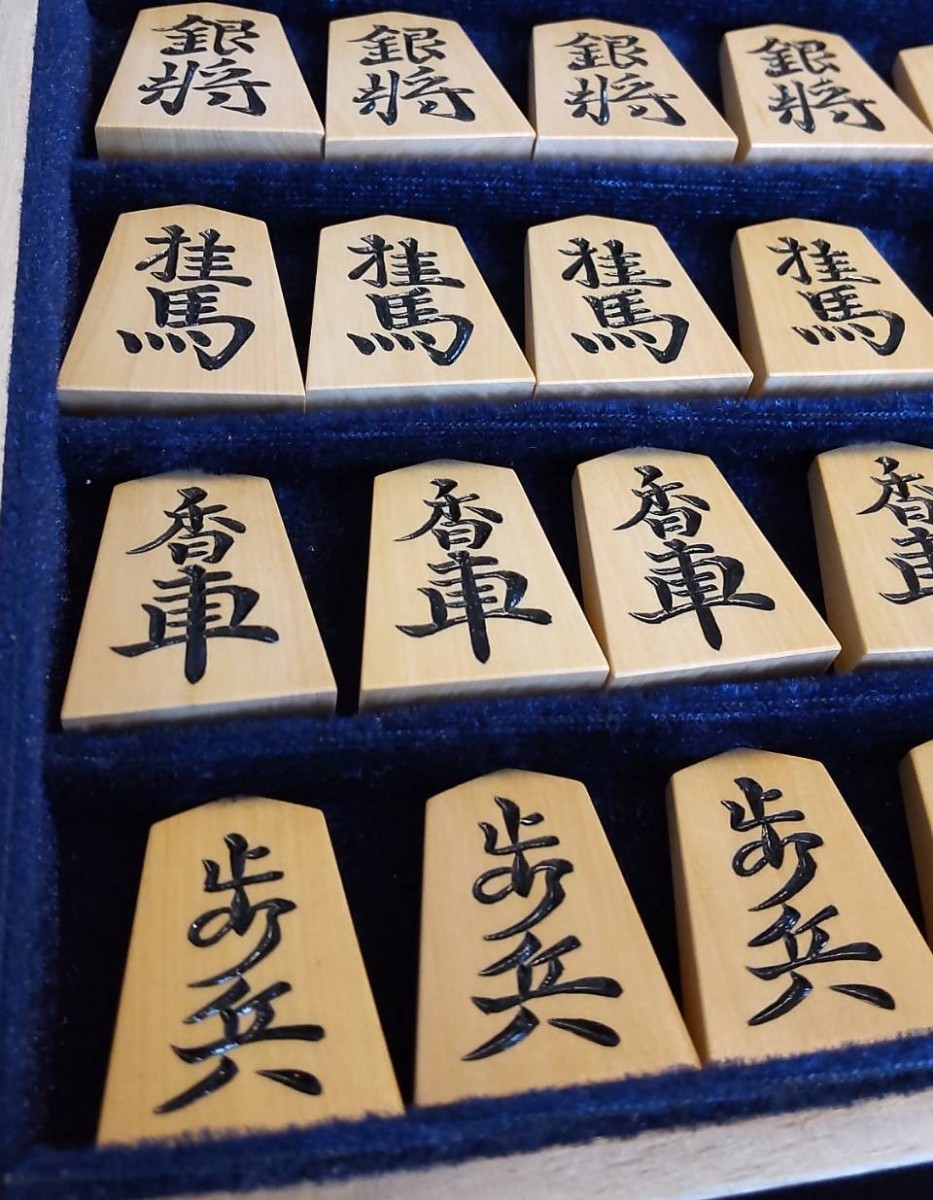 銀将 銀将 銀将 銀将
桂馬 桂馬 桂馬 桂馬
香車 香車 香車 香車
歩兵 歩兵 歩兵